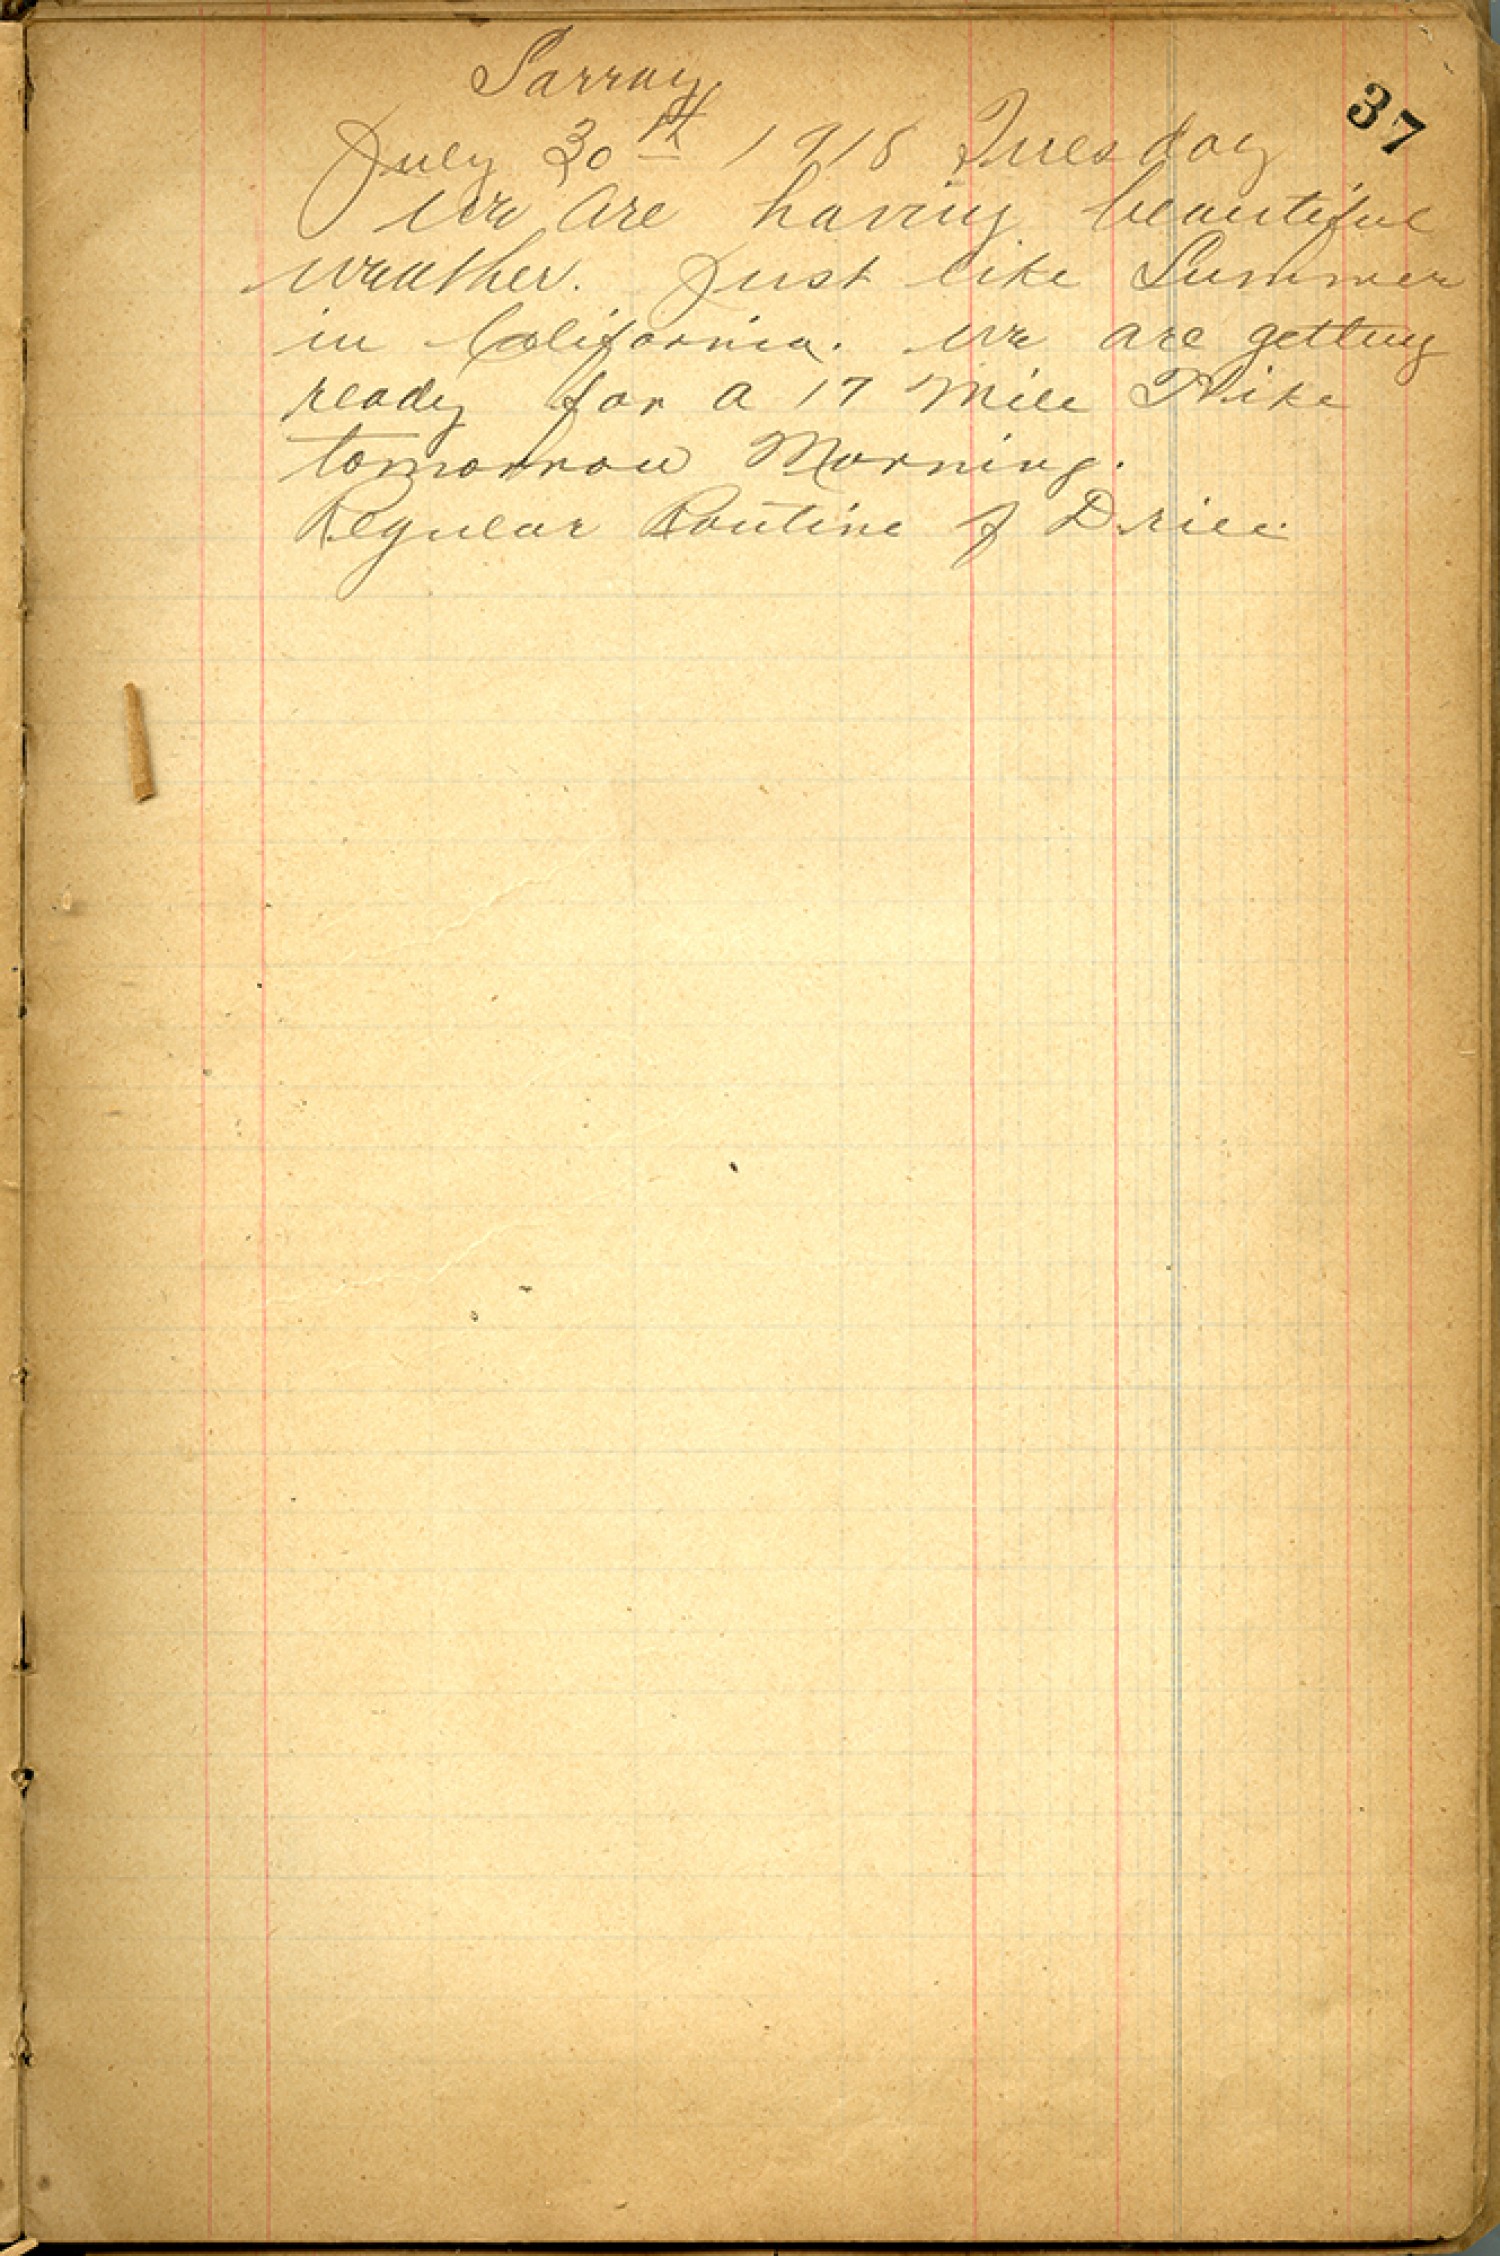 Sarray
37
July 30th 1918 Tuesday
We are having beautiful
weather. Just like Summer
in California. We are getting
ready for a 17 Mile Hike
tomorrow Morning.
Regular Routine of Drill.